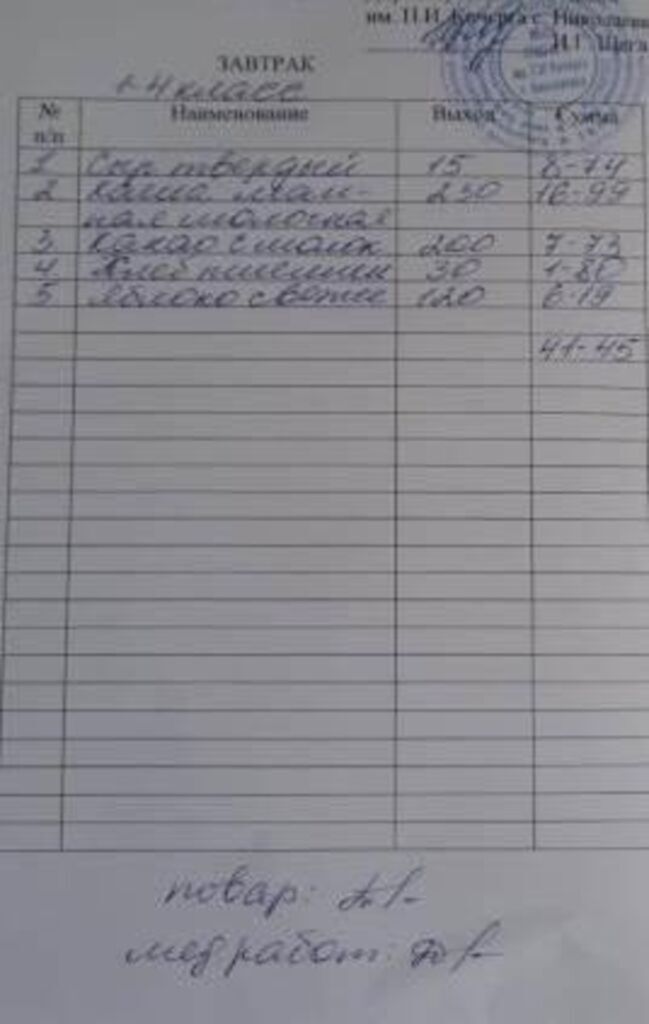 им. П.И. Кочерга с. Николаевк
И.Г. Щега
ЗАВТРАК
1-4 класс
№ п/п Наименование Выход Сумма
1 Сыр твердый 15 8-74
2 Каша ман- 230 16-99
ная молочная
3 Какао с молок 200 7-73
4 Хлеб пшеничн 30 1-80
5 Яблоко свежее 120 6-19
41-45
повар:
мед работ: